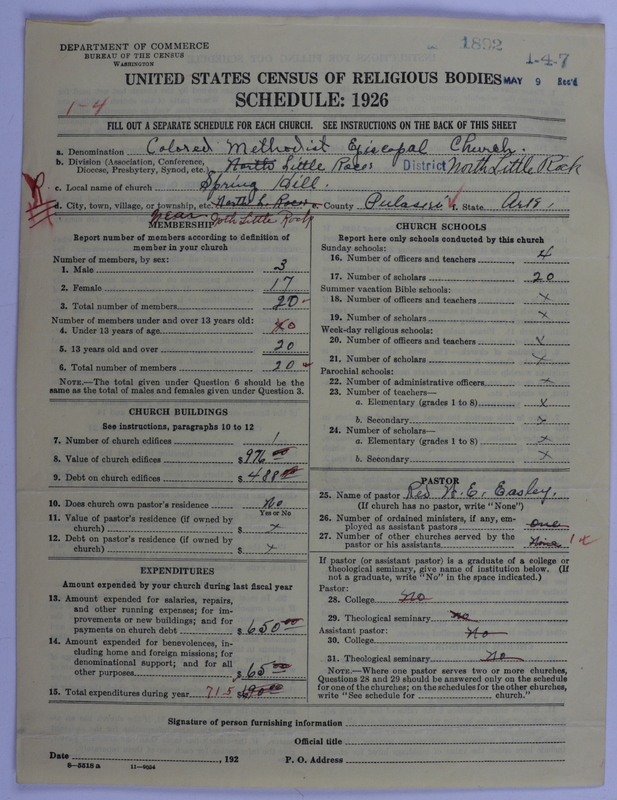 DEPARTMENT OF COMMERCE
BUREAU OF THE CENSUS
WASHINGTON
1892
1-4-7
UNITED STATES CENSUS OF RELIGIOUS BODIES MAY 9 Rec'd
1-4
SCHEDULE: 1926
FILL OUT A SEPARATE SCHEDULE FOR EACH CHURCH. SEE INSTRUCTIONS ON THE BACK OF THIS SHEET
a. Denomination Colored Methodist Episcopal Church.
b. Division (Association, Conference, Diocese, Presbytery, Synod, etc.) North Little Rock District North Little Rock
c. Local name of church Spring Hill.
d. City, town, village, or township, etc. North L. Rock e. County Pulaski f. State Ark,
near North Little Rock
MEMBERSHIP
Report number of members according to definition of
member in your church
Number of members, by sex:
1. Male 3
2. Female 17
3. Total number of members 20
Number of members under and over 13 years old:
4. Under 13 years of age 0
5. 13 years old and over 20
6. Total number of members 20
NOTE.—The total given under Question 6 should be the
same as the total of males and females given under Question 3.
CHURCH BUILDINGS
See instructions, paragraphs 10 to 12
7. Number of church edifices 1
8. Value of church edifices $976 00
9. Debt on church edifices $488 00
10. Does church own pastor's residence No
Yes or No
11. Value of pastor's residence (if owned by
church) $ x
12. Debt on pastor's residence (if owned by
church) $ x
EXPENDITURES
Amount expended by your church during last fiscal year
13. Amount expended for salaries, repairs,
and other running expenses; for im-
provements or new buildings; and for
payments on church debt $650 00
14. Amount expended for benevolences, in-
cluding home and foreign missions; for
denominational support; and for all
other purposes $65 00
15. Total expenditures during year 715 $
CHURCH SCHOOLS
Report here only schools conducted by this church
Sunday schools:
16. Number of officers and teachers 4
17. Number of scholars 20
Summer vacation Bible schools:
18. Number of officers and teachers x
19. Number of scholars x
Week-day religious schools:
20. Number of officers and teachers x
21. Number of scholars x
Parochial schools:
22. Number of administrative officers x
23. Number of teachers—
a. Elementary (grades 1 to 8) x
b. Secondary x
24. Number of scholars—
a. Elementary (grades 1 to 8) x
b. Secondary x
PASTOR
25. Name of pastor Rev W. E. Easley.
(If church has no pastor, write "None")
26. Number of ordained ministers, if any, em-
ployed as assistant pastors one
27. Number of other churches served by the
pastor or his assistants None 1
If pastor (or assistant pastor) is a graduate of a college or
theological seminary, give name of institution below. (If
not a graduate, write "No" in the space indicated.)
Pastor:
28. College No
29. Theological seminary No
Assistant pastor: No
30. College
31. Theological seminary No
NOTE.—Where one pastor serves two or more churches,
Questions 28 and 29 should be answered only on the schedule
for one of the churches; on the schedules for the other churches,
write "See schedule for church."
Signature of person furnishing information
Official title
Date , 192 P. O. Address
8—5518 a 11—9054